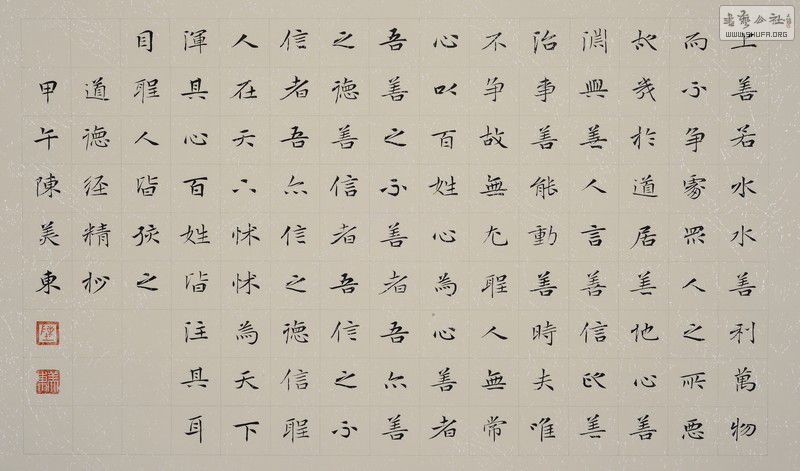 上善若水水善利萬物
而不争處眾人之所惡
故幾於道居善地心善
渊與善人言善信政善
治事善能動善時夫唯
不争故無尤聖人無常
心以百姓心為心善者
吾善之不善者吾亦善
之徳善信者吾信之不
信者吾亦信之徳信聖
人在天下怵怵為天下
渾其心百姓皆注其耳
目聖人皆孩之
道徳経精
甲午陳美東
書藝公社
WWW.SHUFA.ORG